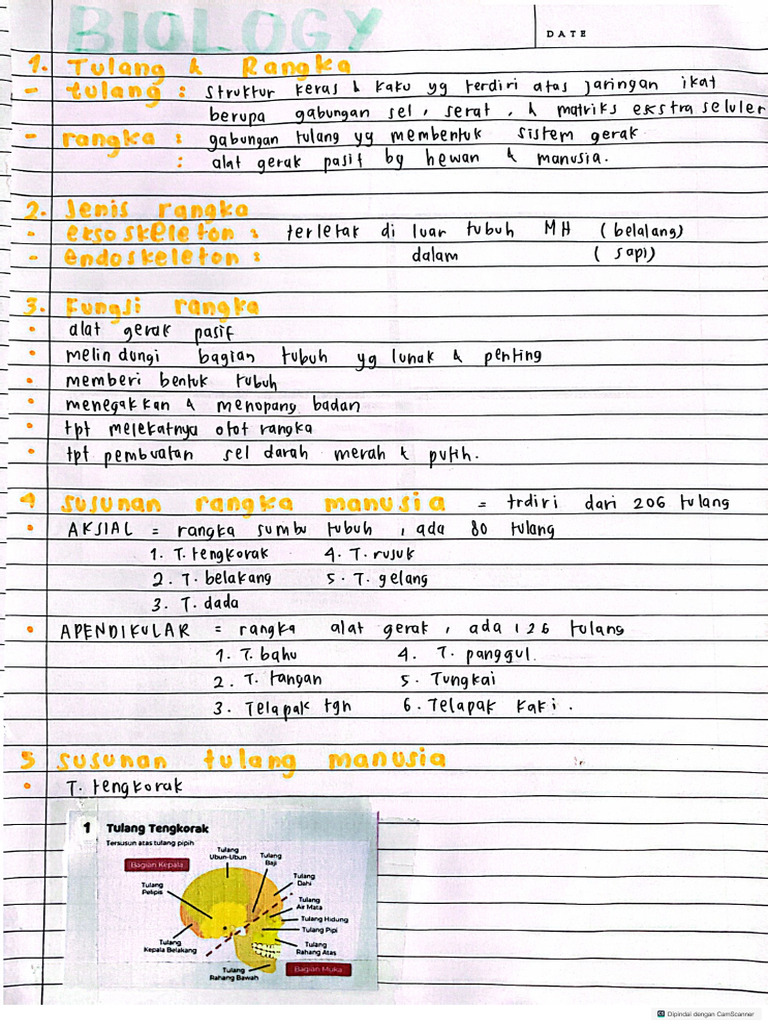 BIOLOGY
DATE
1. Tulang & Rangka
- tulang : struktur keras & kaku yg terdiri atas jaringan ikat
berupa gabungan sel, serat, & matriks ekstra seluler
- rangka : gabungan tulang yg membentuk sistem gerak
: alat gerak pasif bg hewan & manusia.
2. Jenis rangka
- eksoskeleton : terletak di luar tubuh MH (belalang)
- endoskeleton : dalam (sapi)
3. Fungsi rangka
• alat gerak pasif
• melindungi bagian tubuh yg lunak & penting
• memberi bentuk tubuh
• menegakkan & menopang badan
• tpt melekatnya otot rangka
• tpt pembuatan sel darah merah & putih.
4 susunan rangka manusia = trdiri dari 206 tulang
• AKSIAL = rangka sumbu tubuh, ada 80 tulang
1. T. tengkorak 4. T. rusuk
2. T. belakang 5. T. gelang
3. T. dada
• APENDIKULAR = rangka alat gerak, ada 126 tulang
1. T. bahu 4. T. panggul.
2. T. tangan 5. Tungkai
3. Telapak tgn 6. Telapak kaki.
5 susunan tulang manusia
• T. tengkorak
1 Tulang Tengkorak
Tersusun atas tulang pipih
Bagian Kepala
Tulang
Ubun-Ubun
Tulang
Baji
Tulang
Dahi
Tulang
Pelipis
Tulang
Air Mata
Tulang Hidung
Tulang Pipi
Tulang
Kepala Belakang
Tulang
Rahang Atas
Tulang
Rahang Bawah
Bagian Muka
Dipindai dengan CamScanner